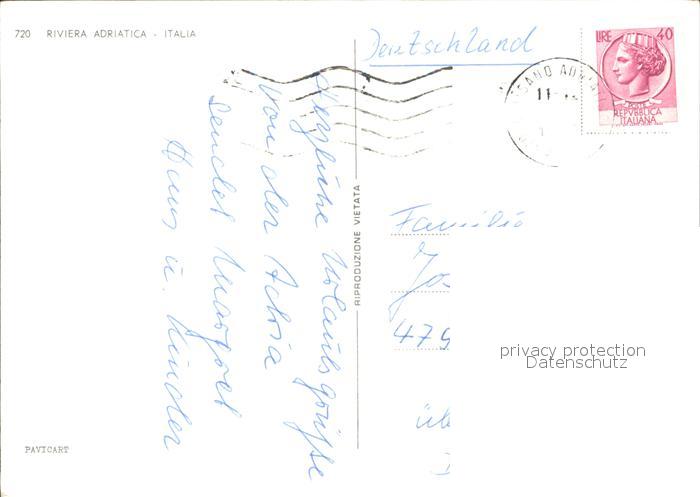 720 RIVIERA ADRIATICA - ITALIA
Deutschland
LIRE 40
POSTE
REPVBBLICA
ITALIANA
ADRIA
11
Herzliche Urlaubsgrüße
von der Adria
sendet Margret
Hans u. Kinder
RIPRODUZIONE VIETATA
Familie
Jo
479
privacy protection
Datenschutz
üb
PAVICART